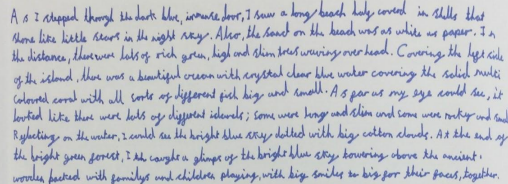 As I stepped through the dark blue, immense door, I saw a long beach holy coverd in shells that
shone like little stars in the night sky. Also, the sand on the beach was as white as paper. In
the distance, there were lots of rich green, high and slim trees waving over head. Covering the left side
of the island, there was a beautiful ocean with crystal clear blue water covering the solid multi
coloured coral with all sorts of different fish big and small. As far as my eye could see, it
looked like there were lots of different islands; some were long and slim and some were rocky and
Reflecting on the water, I could see the bright blue sky dotted with big cotton clouds. At the end of
the bright green forest, I caught a glimps of the bright blue sky towering above the ancient.
wooden packed with familys and children playing, with big smiles to big for their faces, together.